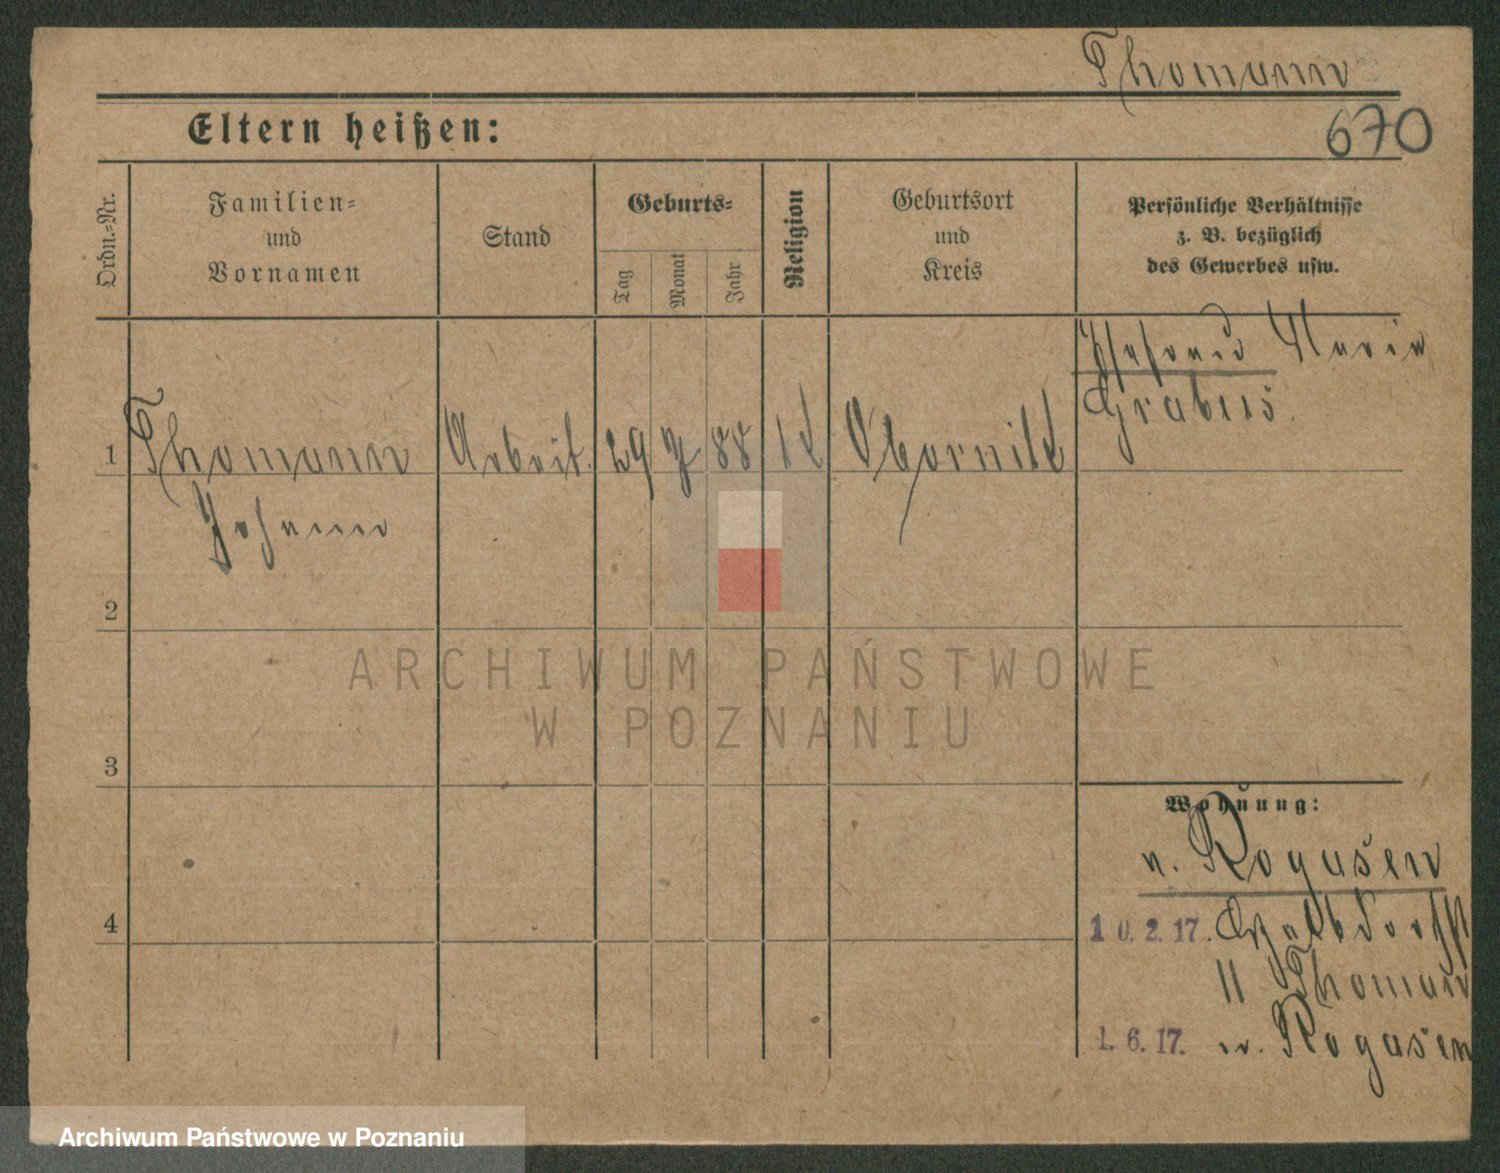 Thomann
Eltern heißen:
670
Ordn.-Nr.
Familien-
und
Vornamen
Stand
Geburts-
Tag
Monat
Jahr
Religion
Geburtsort
und
Kreis
Persönliche Verhältnisse
z. B. bezüglich
des Gewerbes usw.
Marie
Grabus.
1
Thomann
Arbeit.
29
88
Obornik
Johann
2
ARCHIWUM PAŃSTWOWE
W POZNANIU
3
Wohnung:
n. Rogasen
4
10. 2. 17.
11 Thomann
1. 6. 17. n. Rogasen
Archiwum Państwowe w Poznaniu